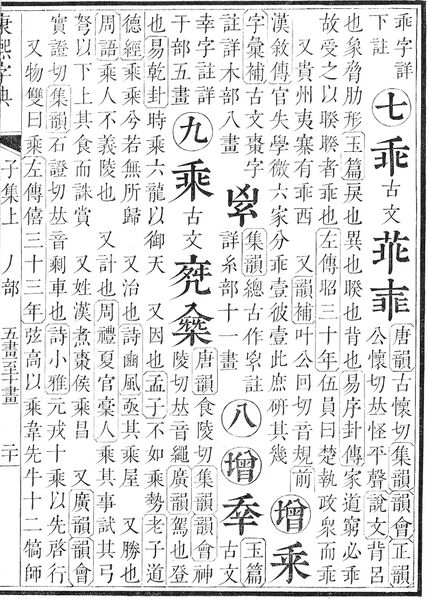 乖字詳
下註
七
乖
古文
𠦬
唐韻古懷切集韻韻會正韻
公懷切𠀤怪平聲說文背呂
也象脅肋形玉篇戾也異也睽也背也易序卦傳家道窮必乖
故受之以睽睽者乖也左傳昭三十年伍員曰楚執政衆而乖
又貴州夷寨有乖西　又韻補叶公回切音規前
漢敘傳官失學微六家分乖壹彼壹此庶硏其幾
增
乑
字彙補古文棗字
註詳木部八畫
集韻總古作
註
詳糸部十一畫
八
增
玉篇
古文
幸字註詳
干部五畫
九
乘
古文
椉
唐韻食陵切集韻韻會神
陵切𠀤音繩廣韻駕也登
也易乾卦時乘六龍以御天　又因也孟子不如乘勢老子道
德經乘乘兮若無所歸　又治也詩豳風亟其乘屋　又勝也
周語乘人不義陵也　又計也周禮夏官槀人乘其事試其弓
弩以下上其食而誅賞　又姓漢煮棗侯乘昌　又廣韻韻會
實證切集韻石證切𠀤音剩車也詩小雅元戎十乘以先啓行
又物雙曰乘左傳僖三十三年弦高以乘韋先牛十二犒師
康熙字典　子集上　丿部　五畫至十畫　二十